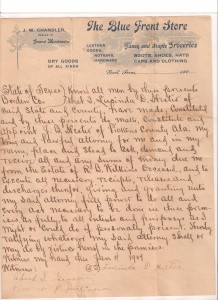 J. M. CHANDLER,
General Merchandise
DRY GOODS
OF ALL KINDS
The Blue Front Store
LEATHER
GOODS,
NOTIONS,
HARDWARE
Fancy and Staple Groceries
BOOTS, SHOES, HATS
CAPS AND CLOTHING
State of Texas } Know all men by these presents
County } that I Lucinda C. Hester of
said State and County have made, Constituted
and by these presents do make, Constitute and
appoint J. A. Hester of County Ala. my
true and lawful attorney for me and in my
name, place, and stead, to ask, demand, and
receive all and any sums of money due me
from the Estate of R. A. deceased, and to
execute all necessary receipts releases and
discharges therefor, giving and granting unto
my said attorney full power to do and perform
every act necessary to be done in these premi-
ses as fully to all intents and purposes as I
might or could do if personally present, hereby
ratifying whatever my said attorney shall or
may do by virtue hereof in the premises
Witness my hand this Jan 11 1901
Witness
Lucinda C. Hester